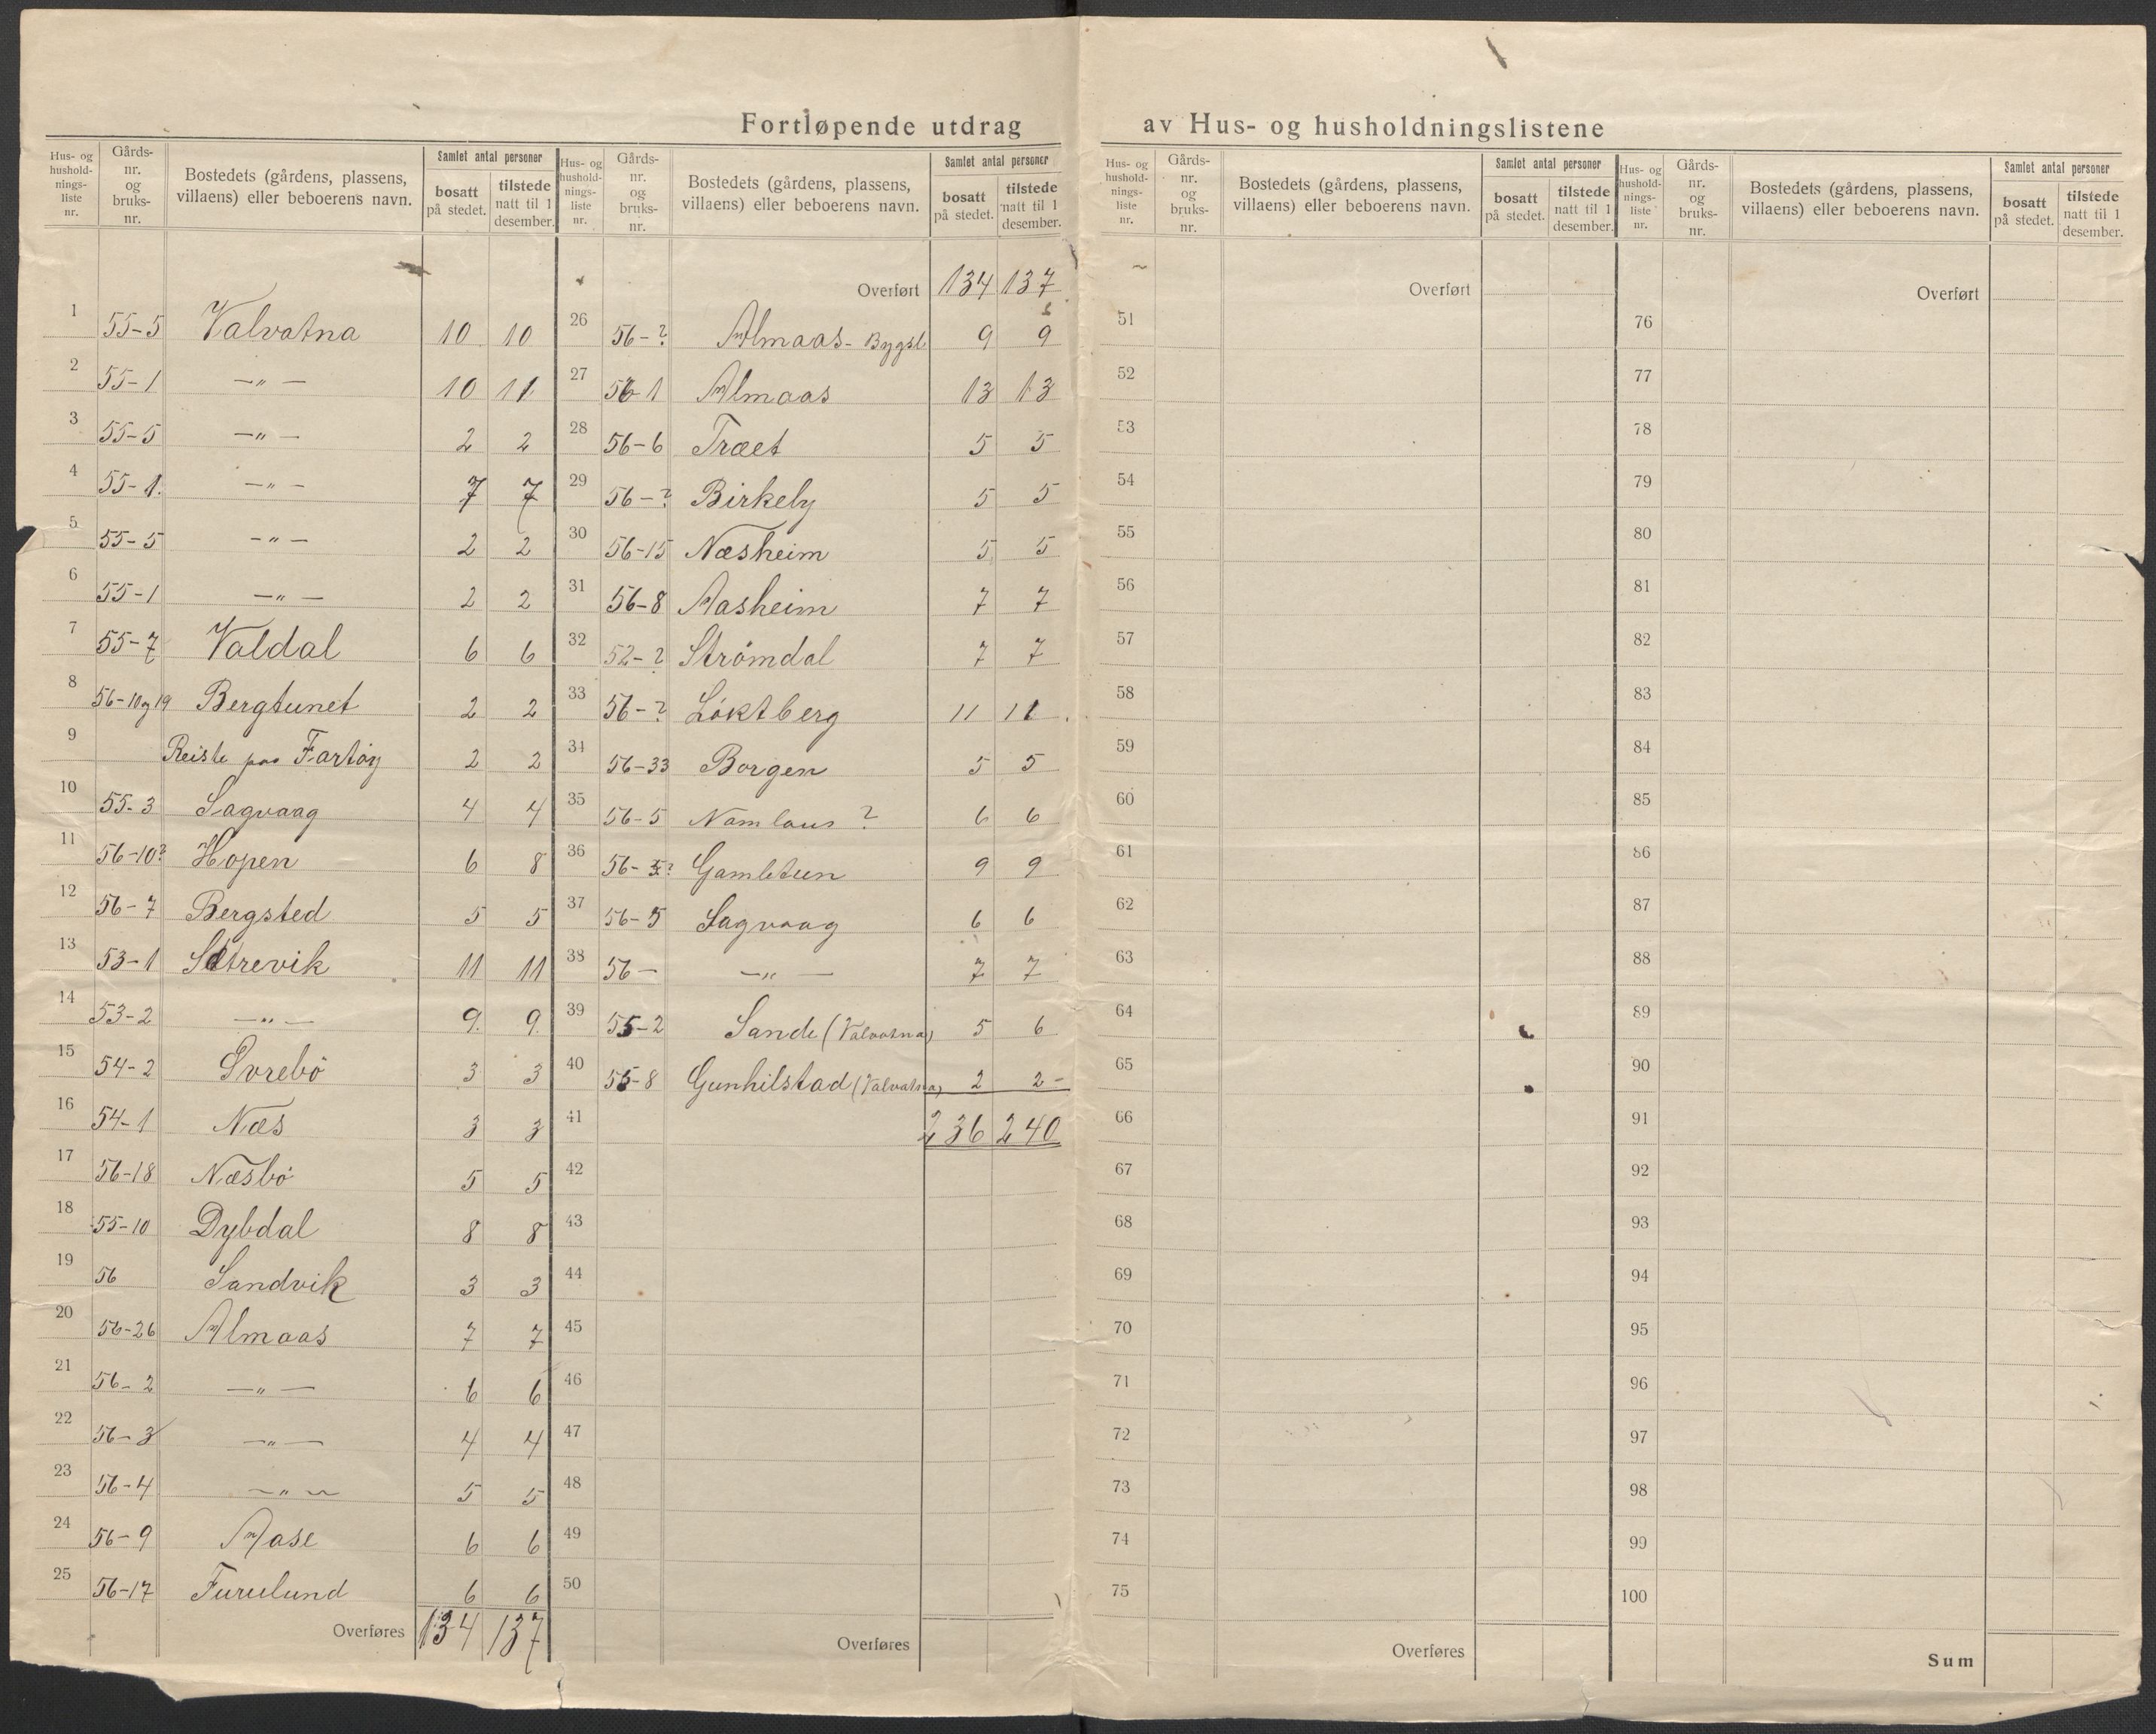 Fortløpende utdrag av Hus- og husholdningslistene
Hus- og husholdnings-liste nr. | Gårds-nr. og bruks-nr. | Bostedets (gårdens, plassens, villaens) eller beboerens navn. | Samlet antal personer bosatt på stedet. | tilstede natt til 1 desember.
1 55-5 Valvatna 10 10
2 55-1 —„— 10 11
3 55-5 —„— 2 2
4 55-1. —„— 7 7
5 55-5 —„— 2 2
6 55-1 —„— 2 2
7 55-7 Valdal 6 6
8 56-10og19 Bergtunet 2 2
9 Reiste paa Fartøy 2 2
10 55-3 Sagvaag 4 4
11 56-10? Hopen 6 8
12 56-7 Bergsted 5 5
13 53-1 Setrevik 11 11
14 53-2 —„— 9. 9.
15 54-2 Svrebö 3 3
16 54-1 Næs 3 3
17 56-18 Næsbö 5 5
18 55-10 Dybdal 8 8
19 56 Sandvik 3 3
20 56-26 Almaas 7 7
21 56-2 —„— 6 6
22 56-3 —„— 4 4
23 56-4 —„— 5 5
24 56-9 Aase 6 6
25 56-17 Furulund 6 6
Overføres 134 137
Hus- og husholdnings-liste nr. | Gårds-nr. og bruks-nr. | Bostedets (gårdens, plassens, villaens) eller beboerens navn. | Samlet antal personer bosatt på stedet. | tilstede natt til 1 desember.
Overført 134 137
26 56-? Almaas- Bygsl 9 9
27 56-1 Almaas 13 13
28 56-6 Træet 5 5
29 56-? Birkely 5 5
30 56-15 Næsheim 5 5
31 56-8 Aasheim 7 7
32 52-? Strömdal 7 7
33 56-? Löktberg 11 11
34 56-33 Borgen 5 5
35 56-5 Namlaus ? 6 6
36 56-5? Gamletun 9 9
37 56-5 Sagvaag 6 6
38 56— —„— 7 7
39 55-2 Sande (Valvatna) 5 6
40 55-8 Gunhilstad (Valvatna) 2 2-
41 236 240
42
43
44
45
46
47
48
49
50
Overføres
Hus- og husholdnings-liste nr. | Gårds-nr. og bruks-nr. | Bostedets (gårdens, plassens, villaens) eller beboerens navn. | Samlet antal personer bosatt på stedet. | tilstede natt til 1 desember.
Overført
51
52
53
54
55
56
57
58
59
60
61
62
63
64
65
66
67
68
69
70
71
72
73
74
75
Overføres
Hus- og husholdnings-liste nr. | Gårds-nr. og bruks-nr. | Bostedets (gårdens, plassens, villaens) eller beboerens navn. | Samlet antal personer bosatt på stedet. | tilstede natt til 1 desember.
Overført
76
77
78
79
80
81
82
83
84
85
86
87
88
89
90
91
92
93
94
95
96
97
98
99
100
Sum